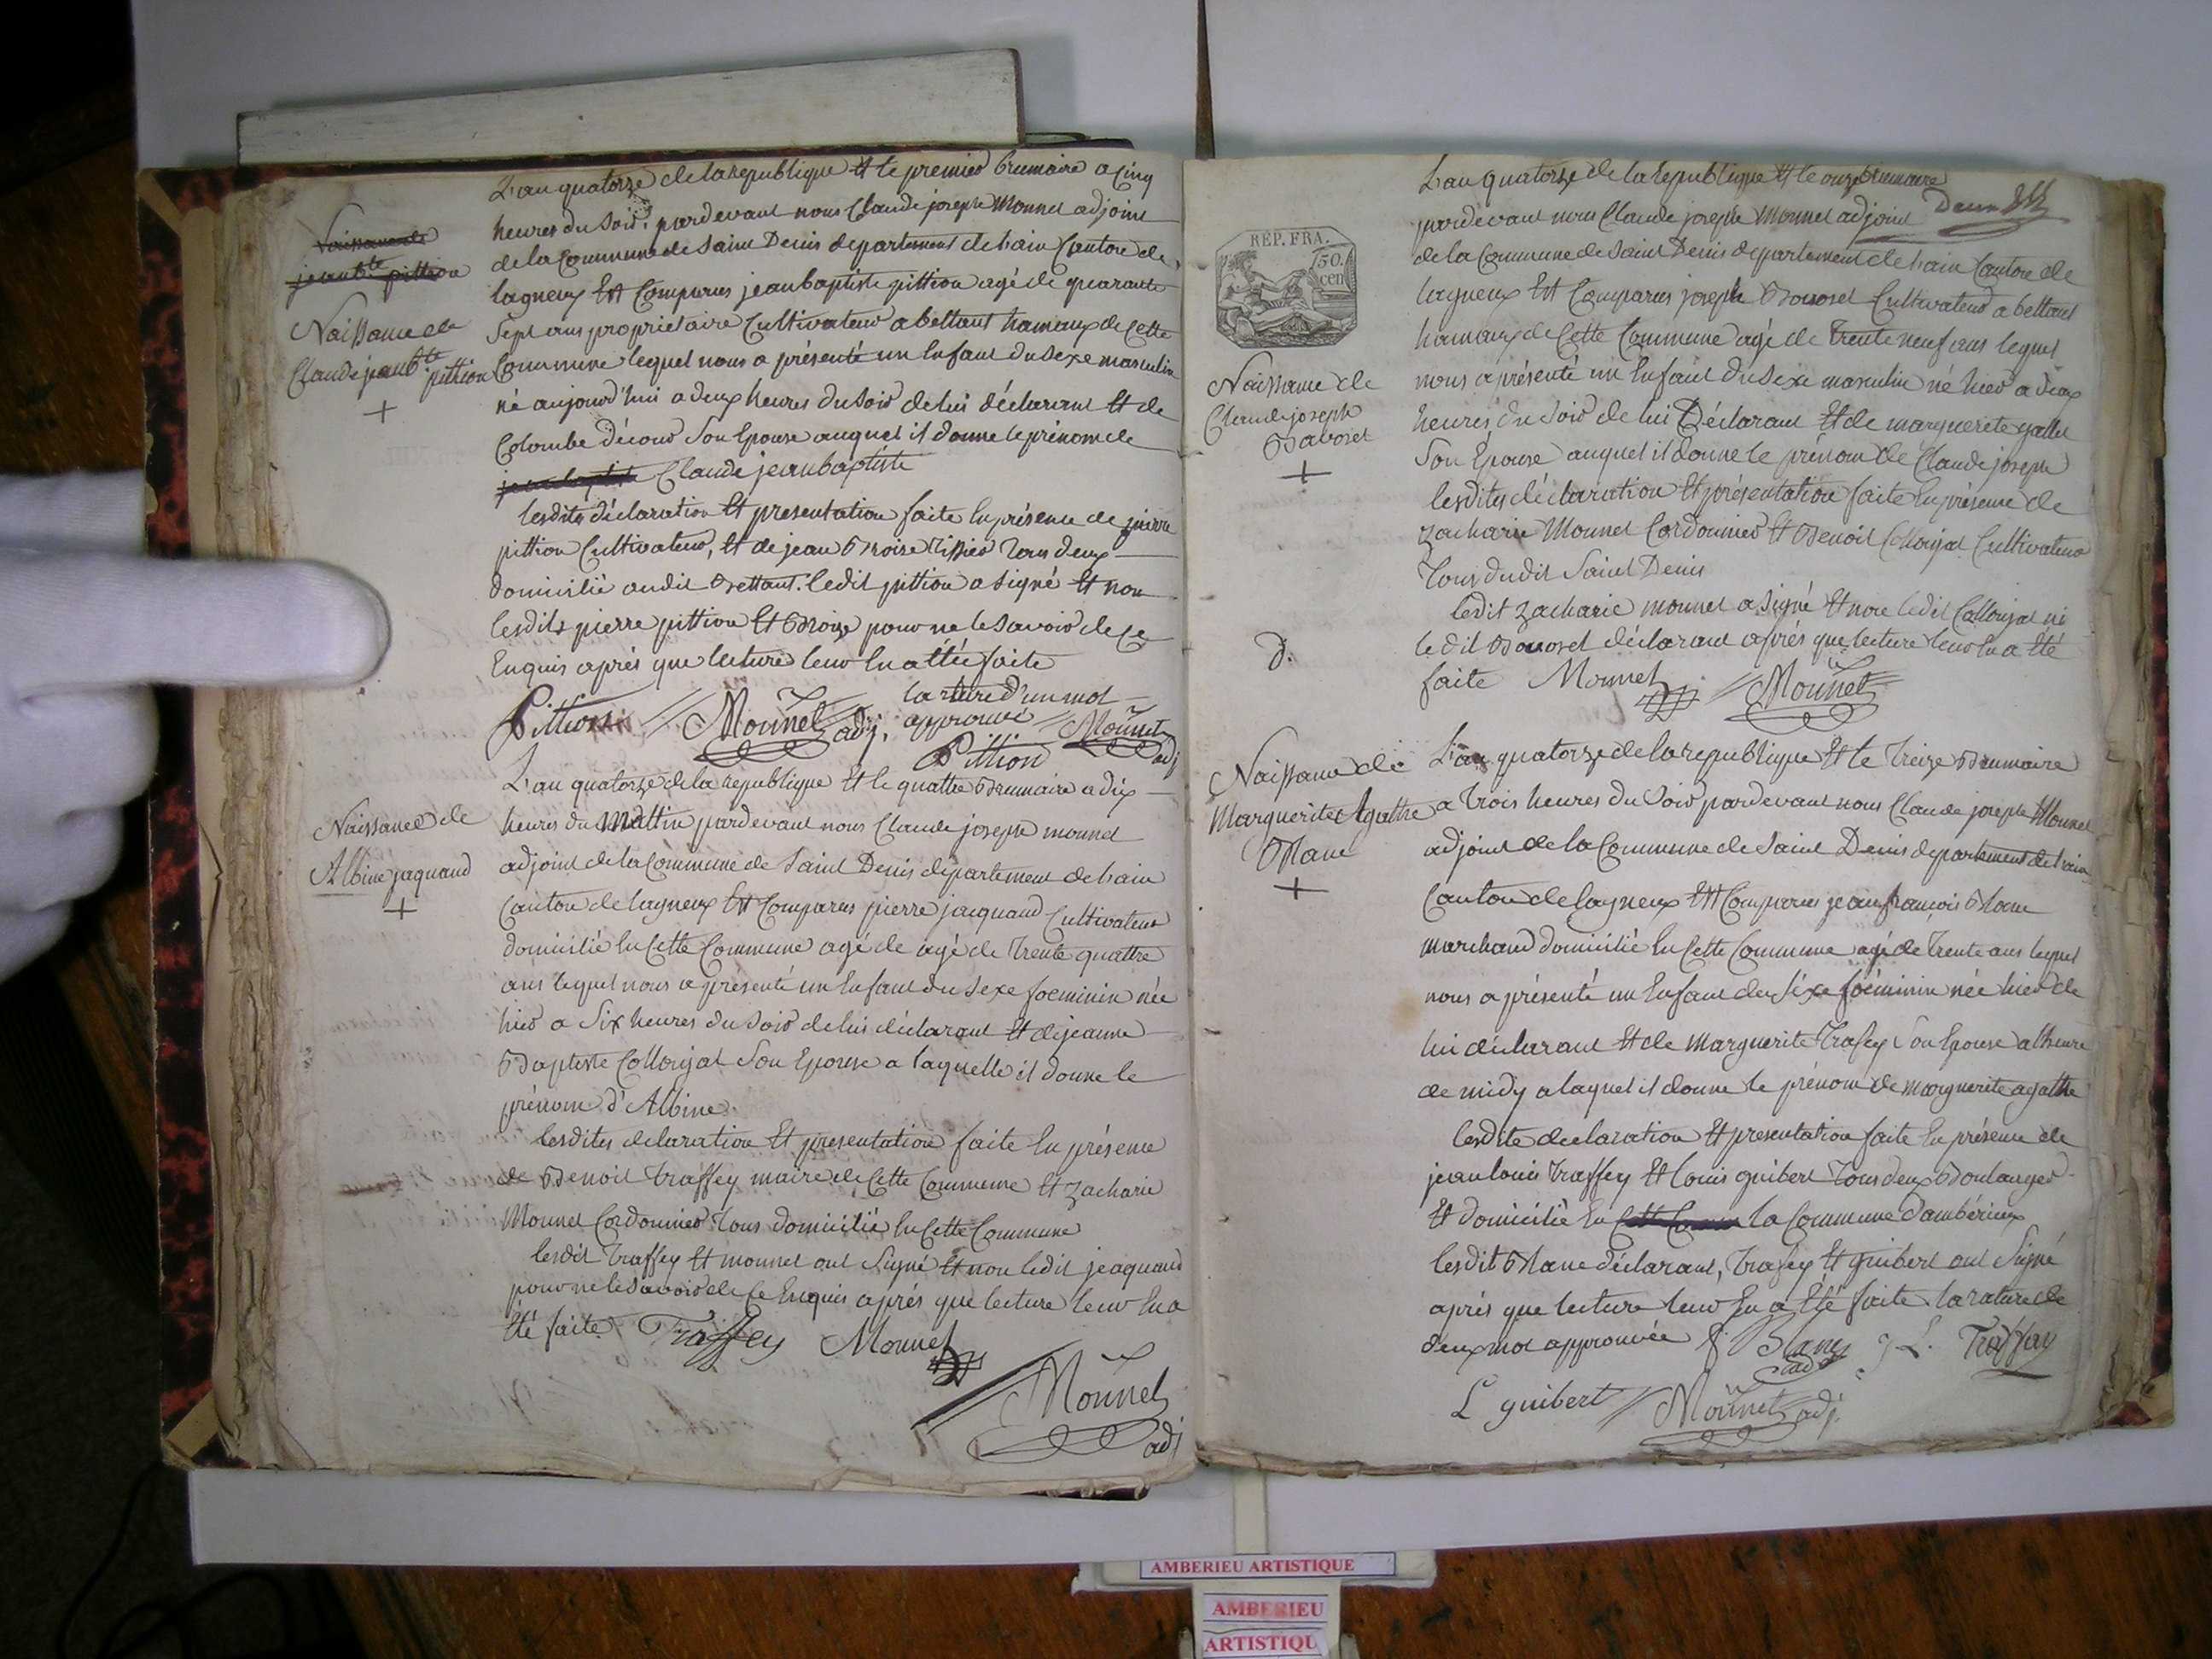 L'an quatorze de la republique Et le premier brumaire a Cinq
heures du Soir, pardevant nous Claude joseph Monnet adjoint
Naissance de
jean bte pittion
de la Commune de Saint Denis departement de hain Canton de
lagneux Est Comparus jean baptiste pittion agé de quarante
Naissance de
Claude jean bte pittion
+
Sept ans propriétaire Cultivateur a bettant hamaux de Cette
Commune lequel nous a présenté un Enfant du Sexe masculin
né aujourd'hui a deux heures du Soir de lui déclarant Et de
Colombe Son Epouse auquel il donne le prénom de
jean baptiste Claude jean baptiste
lesdites déclaration Et presentation faite En présence de pierre
pittion Cultivateur, Et de jean Broise Tissier Tous deux
domicilié audit Bettant. ledit pittion a signé Et non
lesdits pierre pittion Et Broise pour ne le Savoir de Ce
Enquis après que lecture leur En a été faite
Pittion Monnet adj. la rature d'un mot
approuvé Monnet adj
Pittion
L'an quatorze de la republique Et le quattre Brumaire a dix
Naissance de
Albine jaquand
+
heures du Mattin pardevant nous Claude joseph monnet
adjoint de la Commune de Saint Denis département de hain
Canton de lagneux Est Comparus pierre jacquand Cultivateur
domicilié En Cette Commune agé de agé de Trente quattre
ans lequel nous a présenté un Enfant du Sexe foeminin née
hier a Six heures du Soir de lui déclarant Et de jeanne
Baptiste Collonjat Son Epouse a laquelle il donne le
prénom d'Albine
lesdites declaration Et presentation faite En présence
de Benoit Traffey maire de Cette Commune Et Zacharie
Monnet Cordonnier Tous domicilié En Cette Commune
lesdit Traffey Et monnet ont Signé Et non ledit jeaquand
pour ne le Savoir de Ce Enquis après que lecture leur En a
été faite Traffey Monnet
Monnet
adj
L'an quatorze de la republique Et le onze Brumaire
pardevant nous Claude joseph Monnet adjoint
REP. FRA.
750.
cen
de la Commune de Saint Denis departement de hain Canton de
lagneux Est Comparus joseph Bavoset Cultivateur a bettant
hamaux de Cette Commune agé de Trente neuf ans lequel
Naissance de
Claude joseph
Bavoset
+
nous a présenté un Enfant du Sexe masculin né hier a deux
heures du Soir de lui Déclarant Et de marguerite
Son Epouse auquel il donne le prénom de Claude joseph
lesdites déclaration Et présentation faite En présence de
Zacharie Monnet Cordonnier Et Benoit Collonjat Cultivateur
Tous dudit Saint Denis
ledit Zacharie monnet a Signé Et non ledit Collonjat ni
D.
ledit Bavoset déclarant après que lecture leur En a été
faite Monnet Monnet
L'an quatorze de la republique Et le Treize Brumaire
Naissance de
Marguerite Agathe
Blanc
+
a Trois heures du Soir pardevant nous Claude joseph Monnet
adjoint de la Commune de Saint Denis departement de hain
Canton de lagneux Est Comparus jean françois Blanc
marchand domicilié En Cette Commune agé de Trente ans lequel
nous a présenté un Enfant du Sexe foeminin née hier de
lui déclarant Et de Marguerite Trafey Son Epouse a lheure
de midy a laquel il donne le prénom de marguerite agathe
lesdite declaration Et presentation faite En présence de
jean louis Traffey Et louis guibert Tous deux Boulanger
Et domicilié En Cette Commune la Commune d'ambérieux
lesdit Blanc déclarant, Trafey Et guibert ont Signé
après que lecture leur En a Eté faite. la rature de
deux mot approuvée Blanc J L. Traffay
L guibert Monnet adj.
AMBERIEU ARTISTIQUE
AMBERIEU
ARTISTIQU